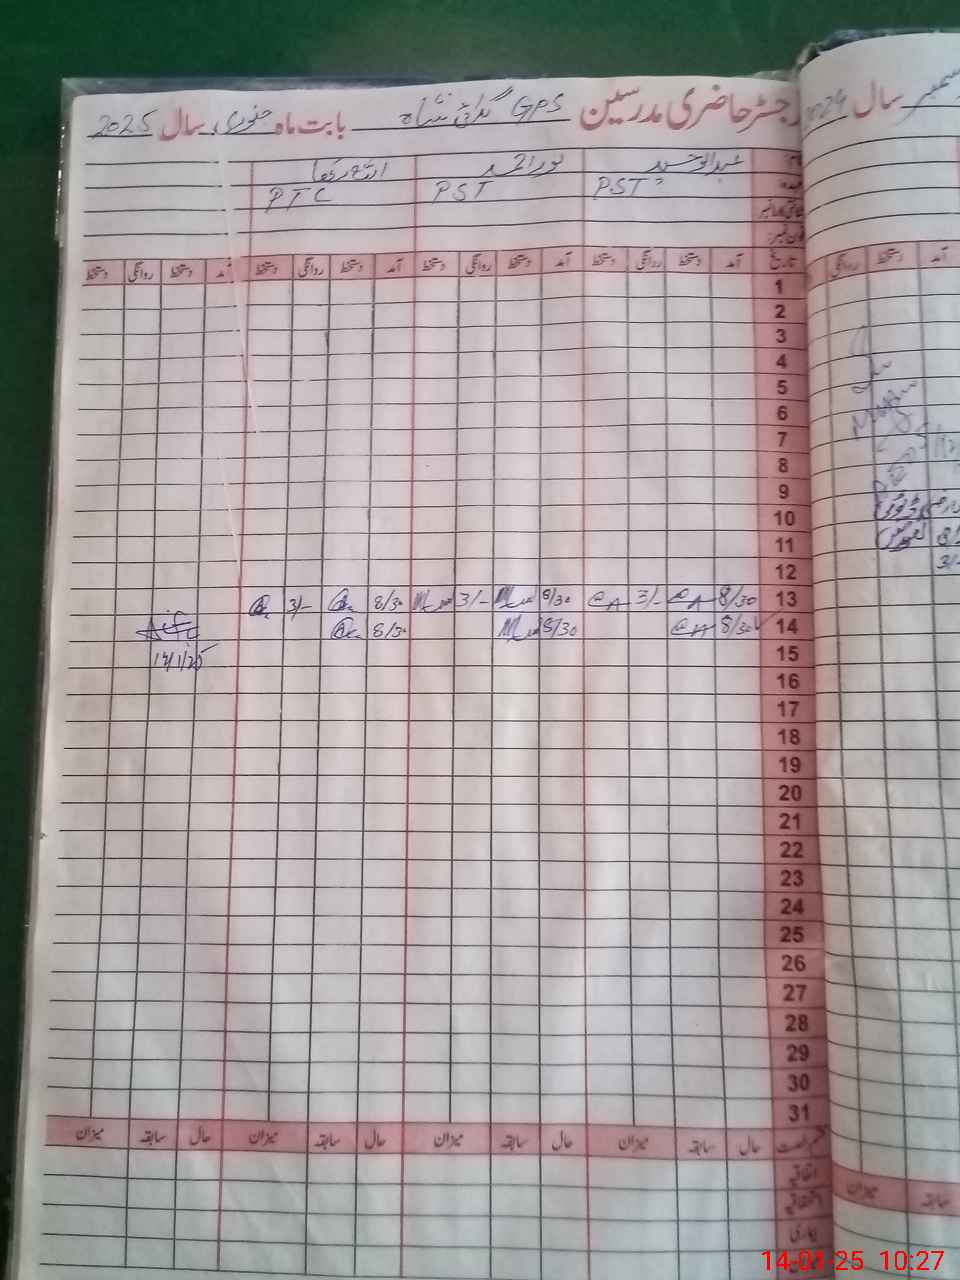 رجسٹر حاضری مدرسین GPS گدائی شاہ بابت ماہ جنوری سال 2025
سال 2024
عبدالوحید نور احمد
عہدہ PST PST PTC
فون نمبر
تاریخ آمد دستخط روانگی دستخط آمد دستخط روانگی دستخط آمد دستخط روانگی دستخط آمد دستخط روانگی دستخط
آمد دستخط روانگی
1
2
3
4
5
6
7
8
9
10
11
12
13 8/30 3/- 8/30 3/- 8/30 3/-
14 8/30 8/30 8/30
15 14/1/25
16
17
18
19
20
21
22
23
24
25
26
27
28
29
30
31
حال سابقہ میزان حال سابقہ میزان حال سابقہ میزان حال سابقہ میزان
میزان سابقہ
اتفاقیہ
استحقاقیہ
بیماری
14-01-25 10:27